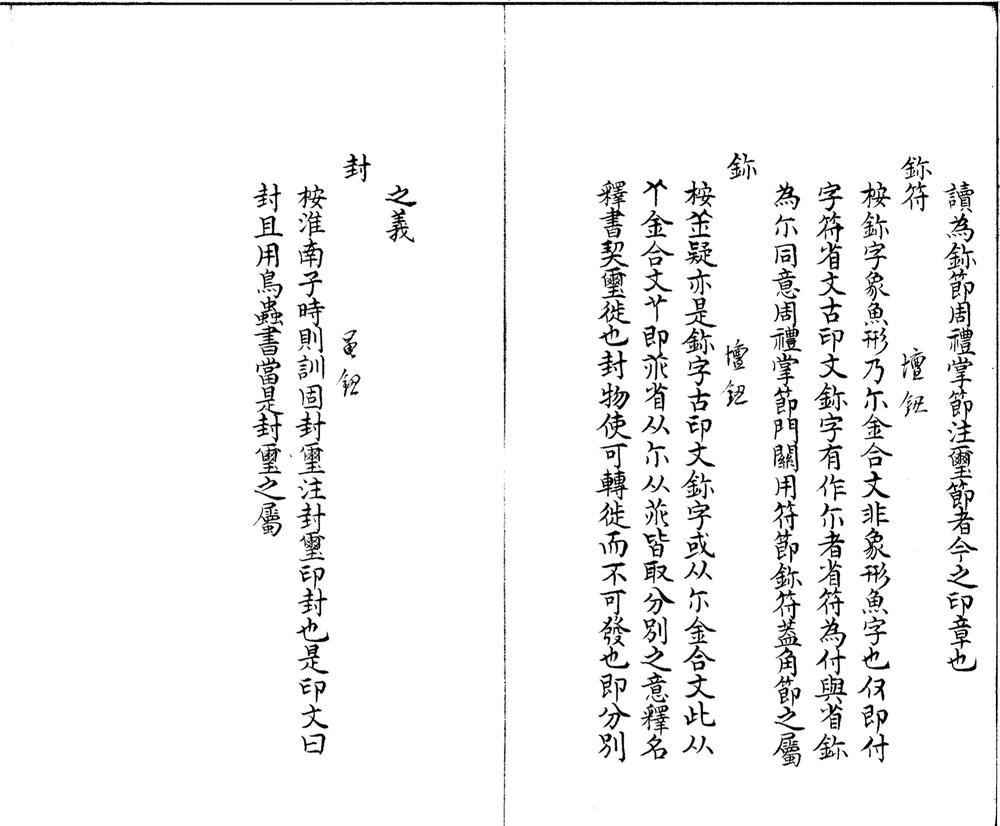 讀為鉨節周禮掌節注璽節者今之印章也
鉨符　壇鈕
桉鉨字象魚形乃尒金合文非象形魚字也仅即付
字符省文古印文鉨字有作尒者省符為付與省鉨
為尒同意周禮掌節門關用符節鉨符葢角節之屬
鉨　壇鈕
桉𦍌疑亦是鉨字古印文鉨字或从尒金合文此从
丫金合文丫即𠦬省从尒从𠦬皆取分別之意釋名
釋書契璽徙也封物使可轉徙而不可發也即分別
之義
封　鈕
桉淮南子時則訓固封璽注封璽印封也是印文曰
封且用鳥蟲書當是封璽之屬